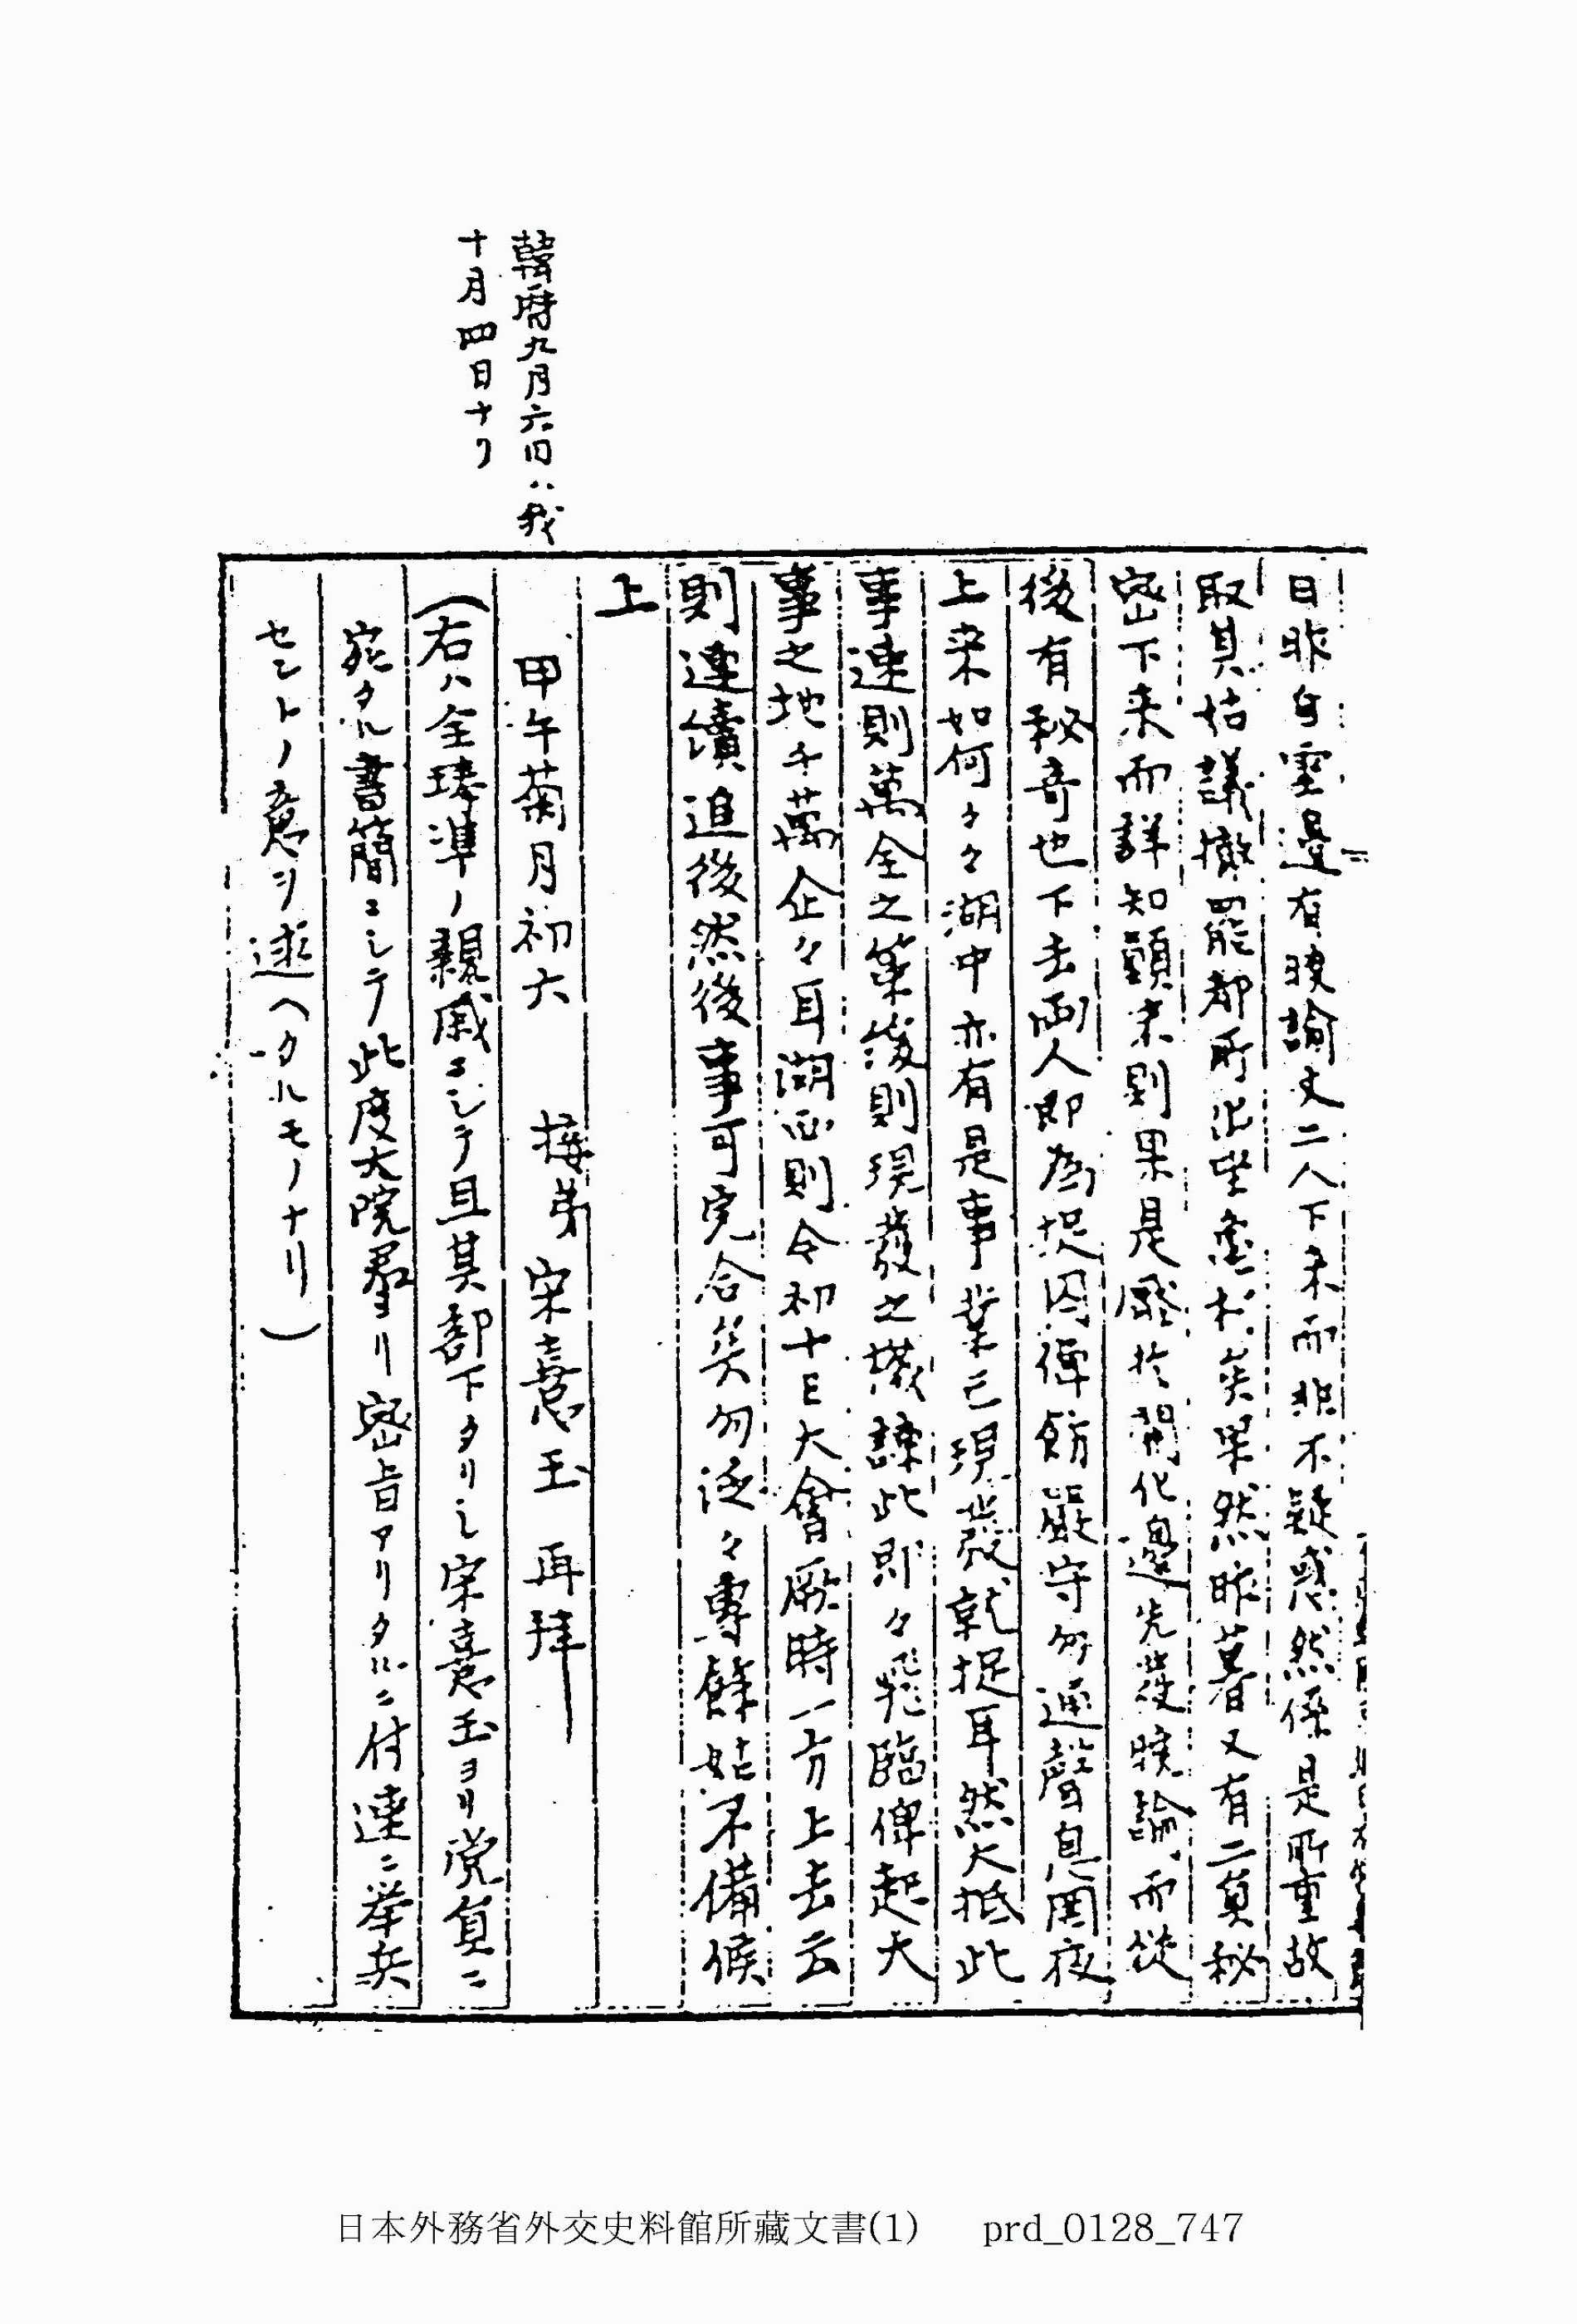 韓暦九月六日ハ我
十月四日ナリ
日昨自雲邊有暁諭文二人下来而非不疑惑然係是所重故
取其姑議撤罷都所泄坐壑木矣果然昨暮又有二員秘
密下来而詳知顛末則果是廢於開化邊先發暁諭而從
後有秘奇也下去両人即為捉囚俾飭嚴守勿通聲息罔夜
上来如何々々湖中亦有是事業已現發就捉耳然大抵此
事速則萬全之策緩則現發之機諫此即々飛臨俾起大
事之地千萬企々耳湖西則今初十日大會厥時一斉上去云
則連續追後然後事可完合矣勿泛々專餘姑不備候
上
甲午菊月初六　接弟　宋憙玉　再拝
(右ハ全琫準ノ親戚ニシテ且其部下タリシ宋憙玉ヨリ党員ニ
宛タル書簡ニシテ此度大院君ヨリ密旨アリタルニ付速ニ挙兵
セントノ意ヲ述ヘタルモノナリ)
日本外務省外交史料館所藏文書(1)　prd_0128_747